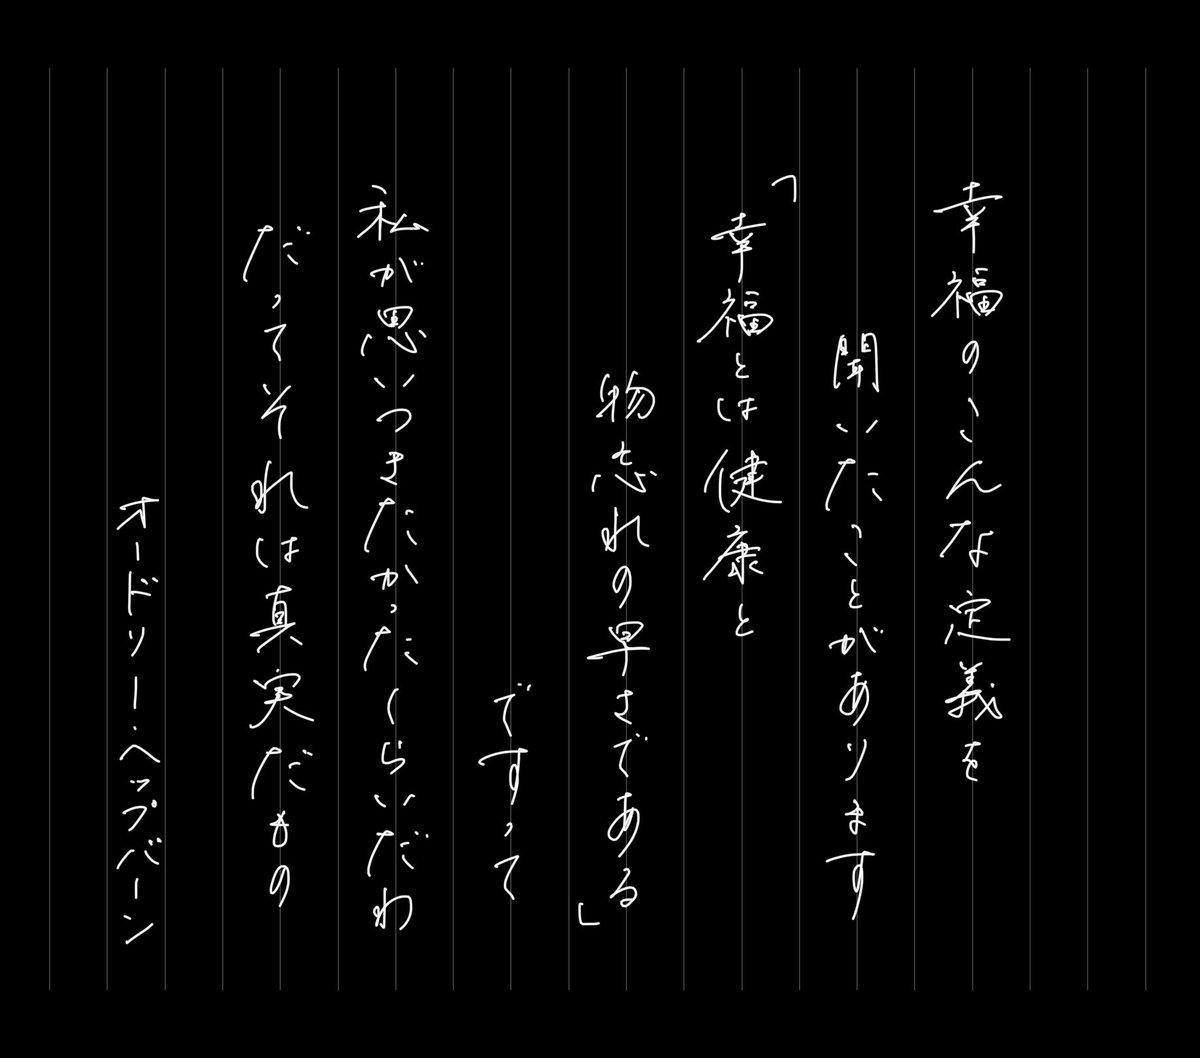 幸福のこんな定義を
聞いたことがあります
「幸福とは健康と
物忘れの早さである」
ですって
私が思いつきたかったくらいだわ
だってそれは真実だもの
オードリー・ヘップバーン